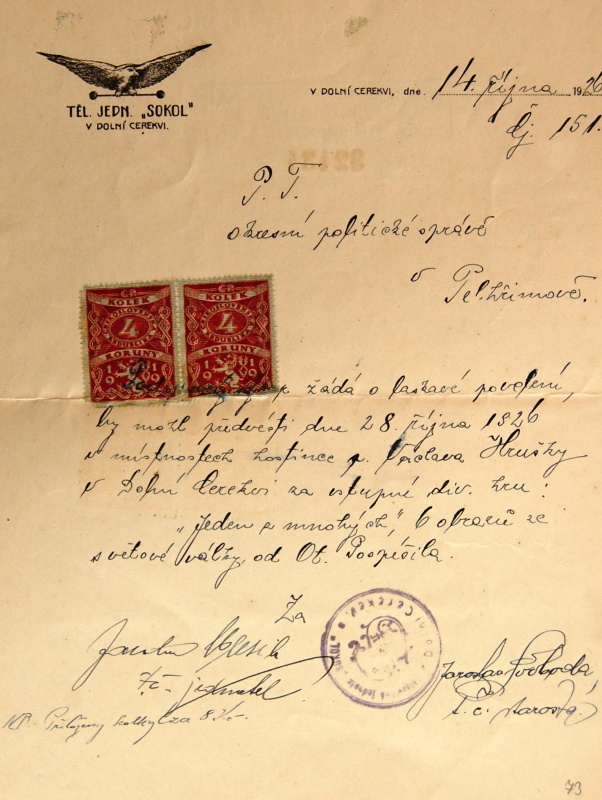 TĚL. JEDN. „SOKOL"
V DOLNÍ CEREKVI.
V DOLNÍ CEREKVI, dne 14. října 1926
Čj. 151.
P. T.
okresní politické správě
v Pelhřimově.
ČR
KOLEK
4
KORUNY
1919
ČR
KOLEK
4
KORUNY
1919
žádá o laskavé povolení,
by mohl předvésti dne 28. října 1926
v místnostech hostince p. Václava Hrušky
v Dolní Cerekvi za vstupné div. hru:
„Jeden z mnohých", 6 obrazů ze
světové války, od Ot. Pospíšila.
Za
t.č. jednatel
Jaroslav Svoboda,
t. č. starosta.
Přiloženy kolky za 8 Kč.
73